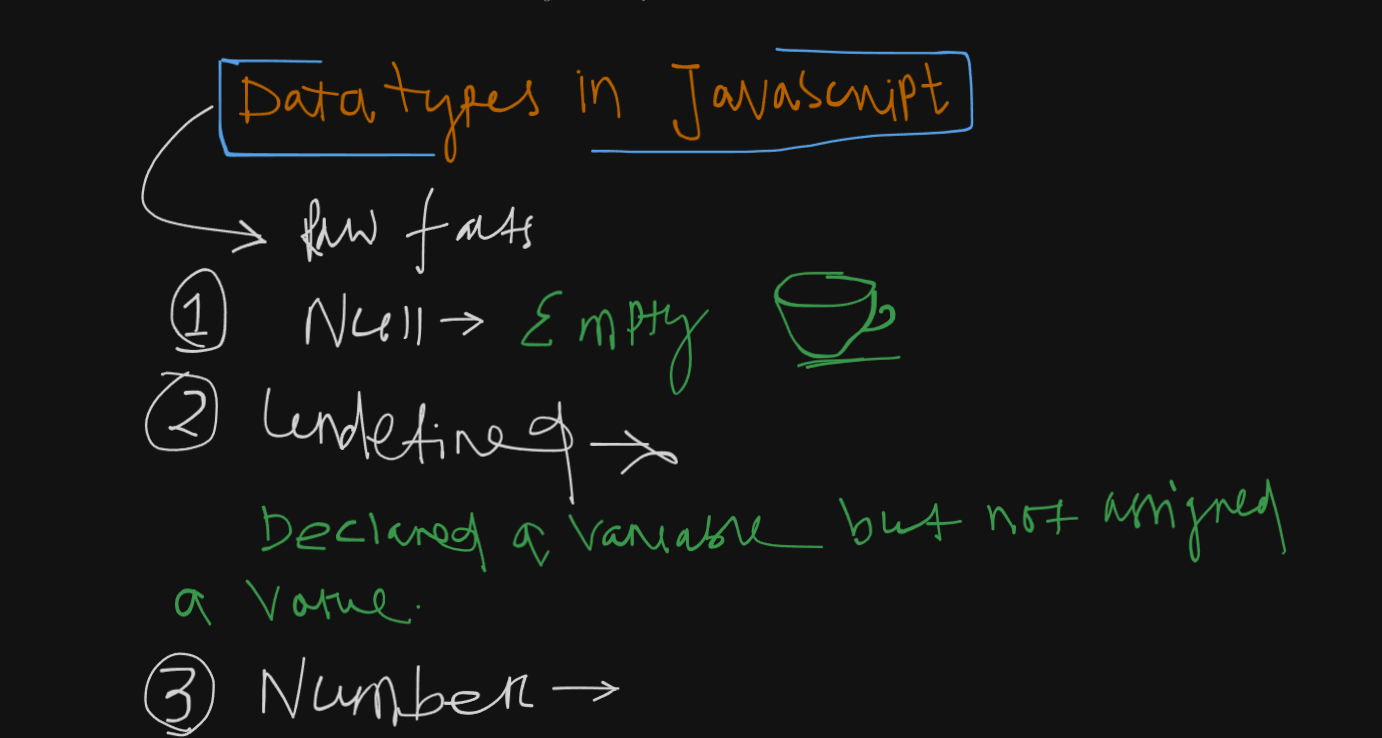 Data types in Javascript
Raw facts
① Null → Empty
② Undefined →
Declared a variable but not assigned
a value.
③ Number →